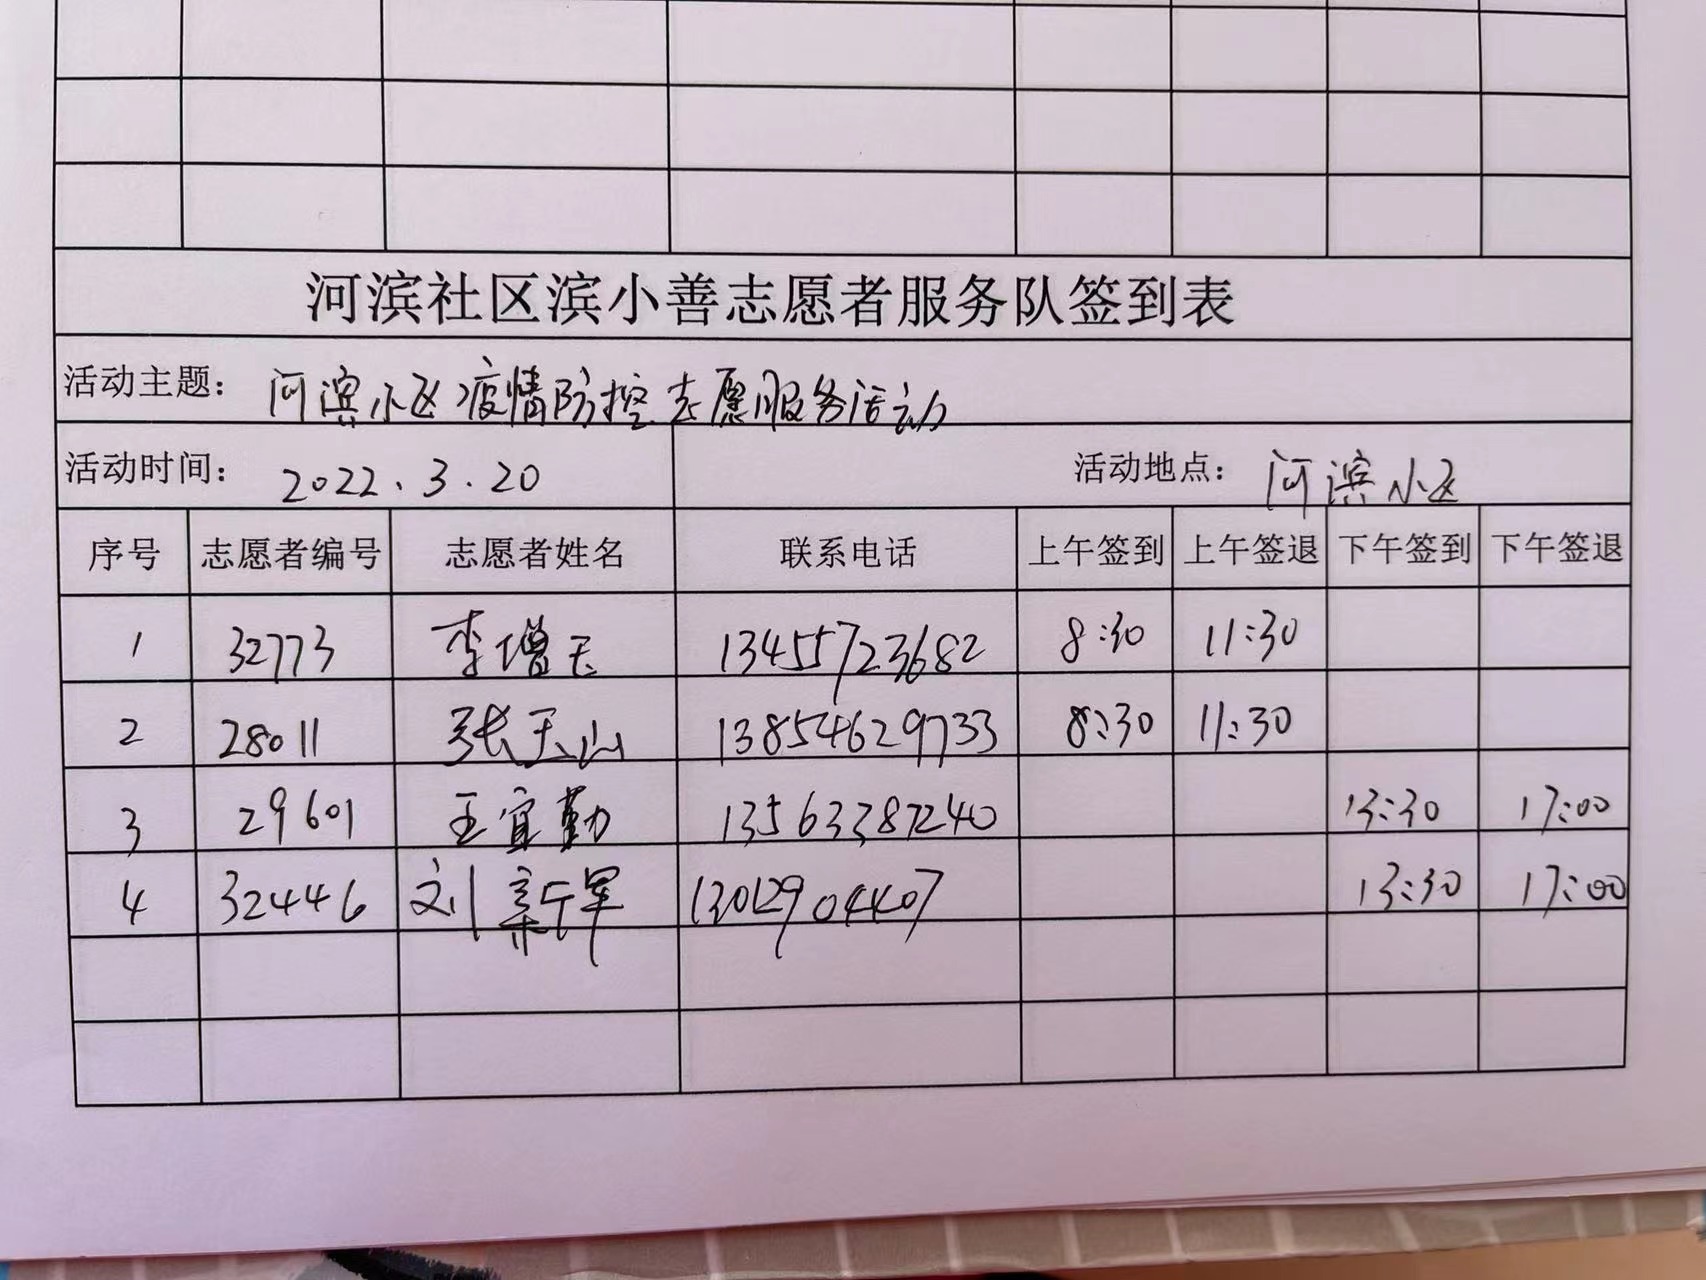 河滨社区滨小善志愿者服务队签到表
活动主题: 河滨小区疫情防控志愿服务活动
活动时间: 2022.3.20 活动地点: 河滨小区
序号 志愿者编号 志愿者姓名 联系电话 上午签到 上午签退 下午签到 下午签退
1 32773 李增玉 13455723682 8:30 11:30
2 28011 张玉山 13854629733 8:30 11:30
3 29601 王宜勤 13563387240 13:30 17:00
4 32446 刘新军 13012904407 13:30 17:00